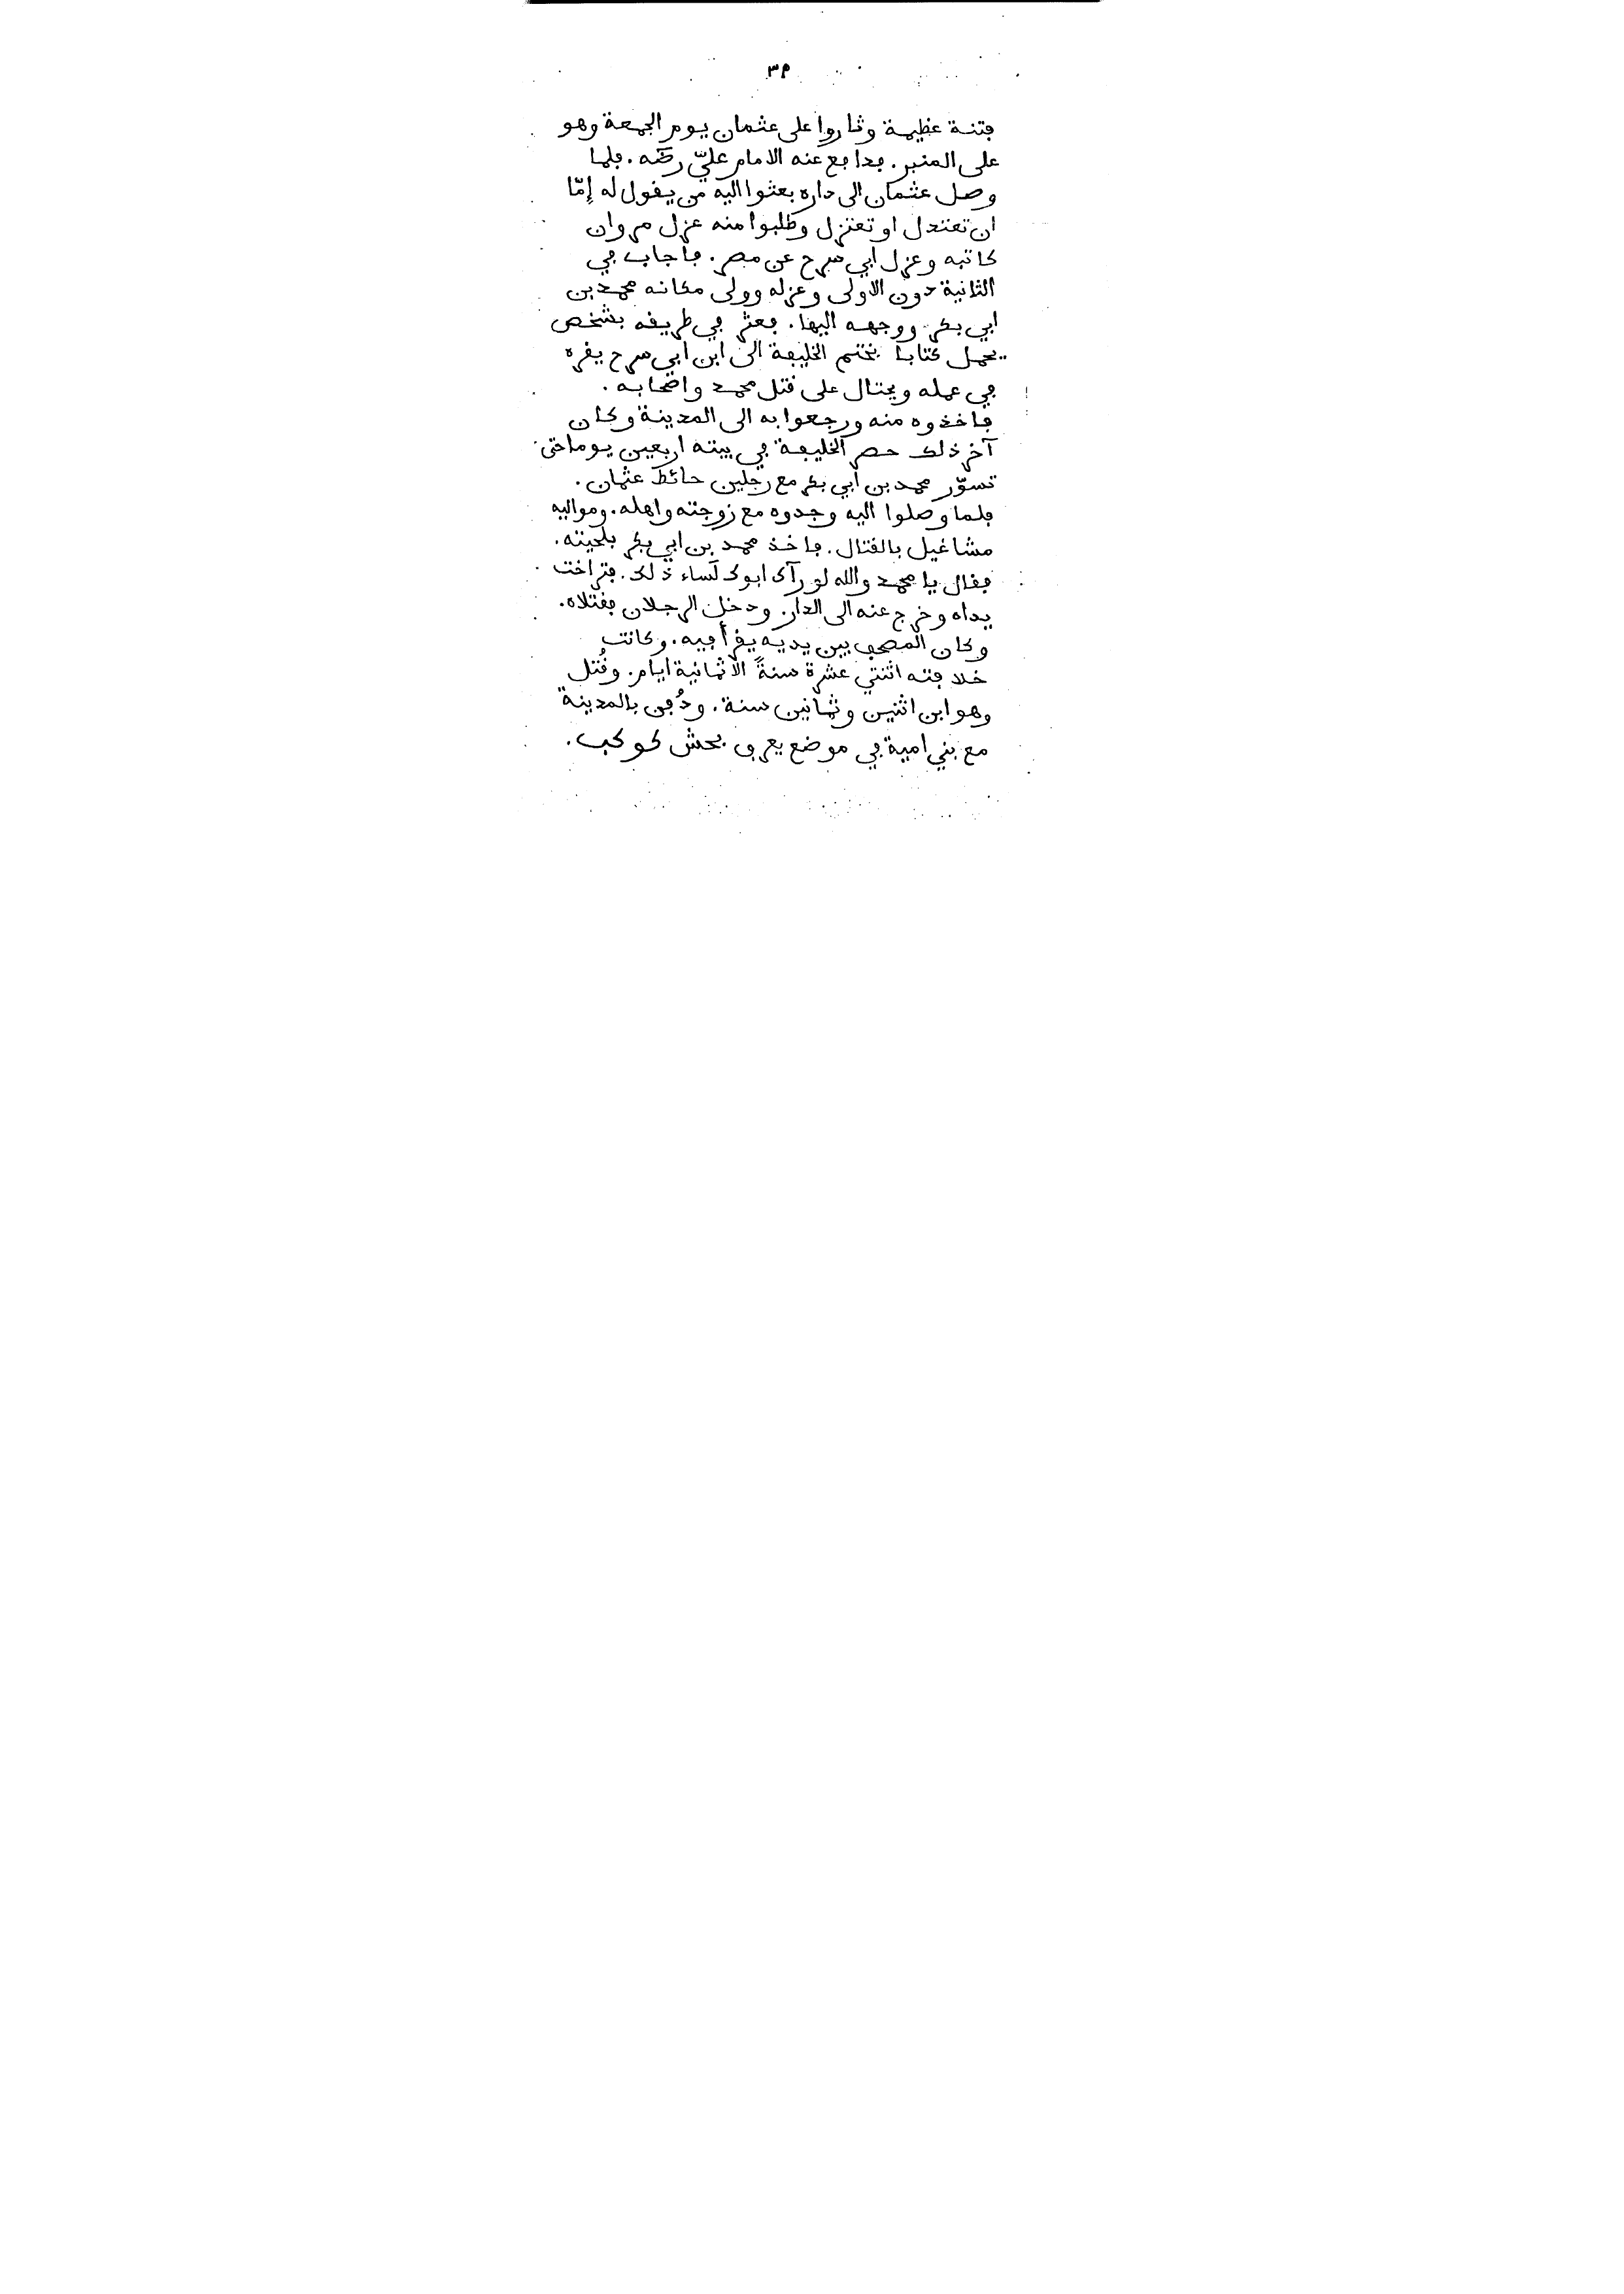 ٣٩
فتنة عظيمة وثاروا على عثمان يوم الجمعة وهو
على المنبر. فدافع عنه الامام عليّ رضه. فلما
وصل عثمان الى داره بعثوا اليه من يقول له إمّا
ان تعتدل او تعتزل وطلبوا منه عزل مروان
كاتبه وعزل ابي سرح عن مصر. فاجاب في
الثانية دون الاولى وعزله وولى مكانه محمد بن
ابي بكر ووجهه اليها. فعثر في طريقه بشخص
يحمل كتابا بختم الخليفة الى ابن ابي سرح يقره
في عمله ويحتال على قتل محمد واصحابه.
فاخذوه منه ورجعوا به الى المدينة وكان
آخر ذلك حصر الخليفة في بيته اربعين يوما حتى
تسوّر محمد بن ابي بكر مع رجلين حائط عثمان.
فلما وصلوا اليه وجدوه مع زوجته واهله. ومواليه
مشاغيل بالقتال. فاخذ محمد بن ابي بكر بلحيته.
فقال يا محمد والله لو رآك ابوك لساء ذلك. فتراخت
يداه وخرج عنه الى الدار. ودخل الرجلان فقتلاه.
وكان المصحف بين يديه يقرأ فيه. وكانت
خلافته اثنتي عشرة سنةً الا ثمانية ايام. وقُتل
وهو ابن اثنين وثمانين سنة. ودُفن بالمدينة
مع بني امية في موضع يعرف بحش كوكب.